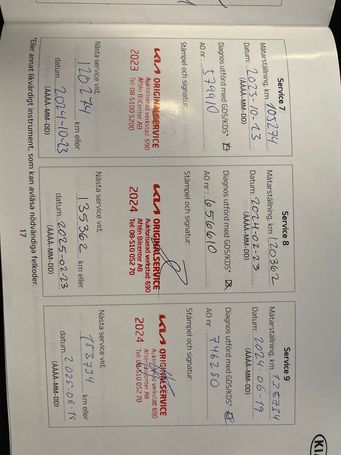 Service 7
Mätarställning, km 105274
Datum: 2023-10-23
(ÅÅÅÅ-MM-DD)
Diagnos utförd med GDS/KDS*
AO nr: 579910
Stämpel och signatur:
KIA ORIGINALSERVICE
Auktoriserad verkstad 690
Atteviks Bilcenter AB
2023
Nästa service vid:
120274 km eller
datum: 2024-10-23
(ÅÅÅÅ-MM-DD)
Service 8
Mätarställning, km 120362
Datum: 2024-02-23
(ÅÅÅÅ-MM-DD)
Diagnos utförd med GDS/KDS*
AO nr: 656610
Stämpel och signatur:
KIA ORIGINALSERVICE
Auktoriserad verkstad 690
2024 Tel. 08-510 052 70
Nästa service vid:
135362 km eller
datum: 2025-02-23
(ÅÅÅÅ-MM-DD)
Service 9
Mätarställning, km
Datum: 2024-06-19
(ÅÅÅÅ-MM-DD)
Diagnos utförd med GDS/KDS*
AO nr: 746250
Stämpel och signatur:
KIA ORIGINALSERVICE
Auktoriserad verkstad 690
2024 Tel. 08-510 052 70
Nästa service vid:
km eller
datum: 2025-06-19
(ÅÅÅÅ-MM-DD)
*Eller annat likvärdigt instrument, som kan avläsa nödvändiga felkoder.
17